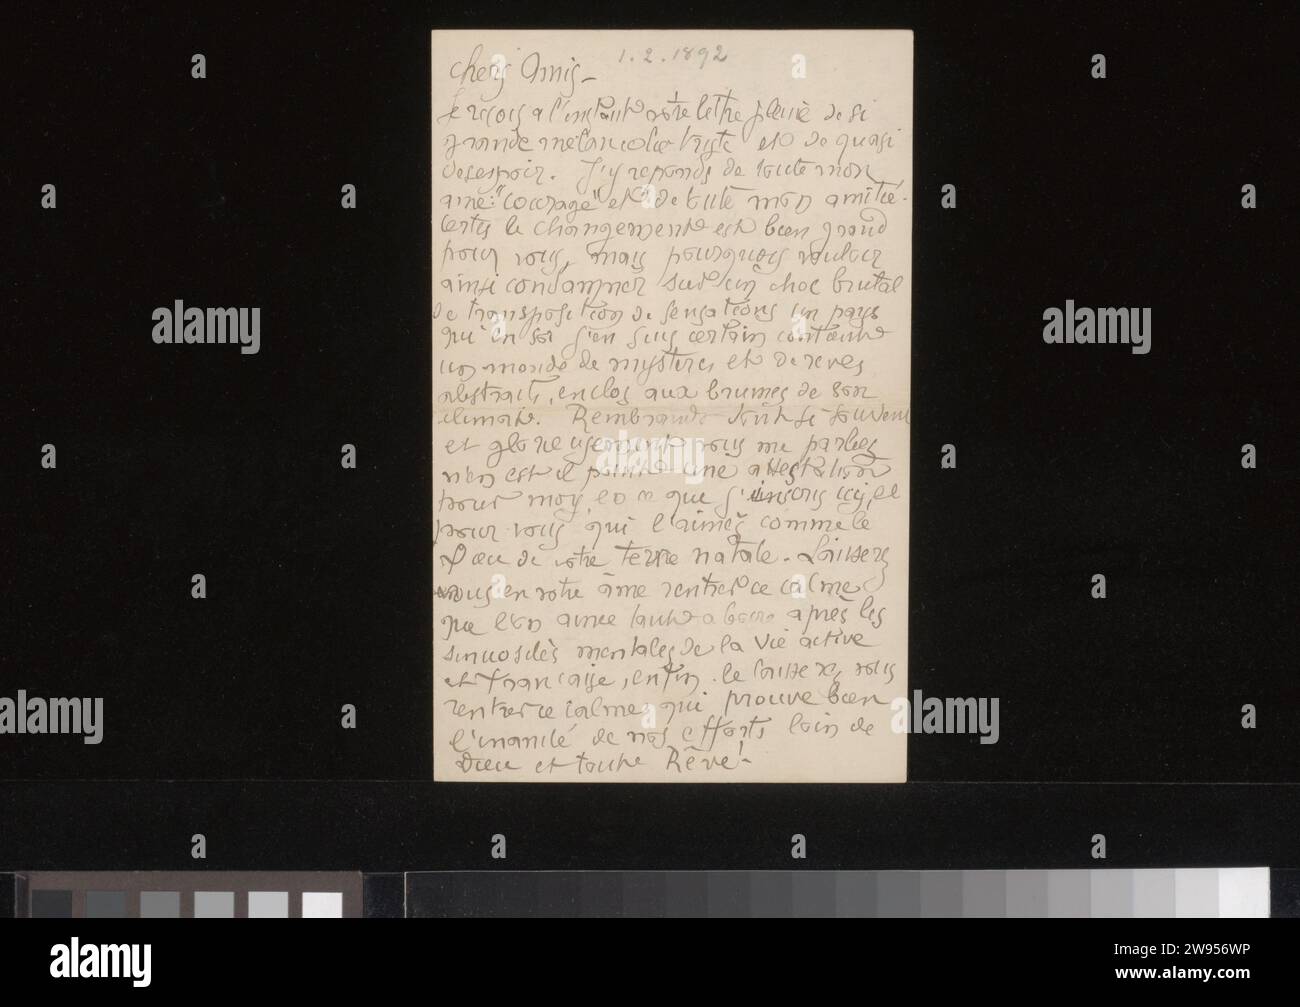 1.2.1892
Chers Amis –
Je reçois a l'instant votre lettre pleine de si
grande mélancolie triste et de quasi
desespoir. J'y reponds de toute mon
ame: "courage" et de toute mon amitié.
Certes le changement est bien grand
pour vous, mais pourquoi vouloir
ainsi condamner sur un choc brutal
de transposition de sensations un pays
qui en soi j'en suis certain contient
un monde de mysteres et de reves
abstraits, enclos aux brumes de son
climat. Rembrandt dont si souvent
et glorieusement vous me parlez
n'en est il point une attestation
pour moy, en ce que j' ici, et
pour vous qui l'aimes comme le
Dieu de votre terre natale. Laissez
vous en votre âme rentrer ce calme
que l'on aime tant a après les
sinuosités mentales de la vie active
et française, enfin. le laissez, vous
rentrer ce calme, qui prouve bien
l'inanité de nos efforts loin de
Dieu et toute Rêve! –
alamy
a
2W956WP
www.alamy.com
Image ID: 2W956WP